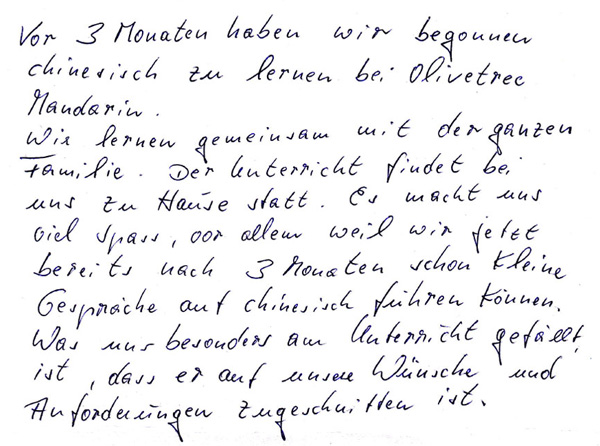 Vor 3 Monaten haben wir begonnen
chinesisch zu lernen bei Olivetree
Mandarin.
Wir lernen gemeinsam mit der ganzen
Familie. Der Unterricht findet bei
uns zu Hause statt. Es macht uns
viel Spass, vor allem weil wir jetzt
bereits nach 3 Monaten schon kleine
Gespräche auf chinesisch führen können.
Was uns besonders am Unterricht gefällt,
ist, dass er auf unsere Wünsche und
Anforderungen zugeschnitten ist.